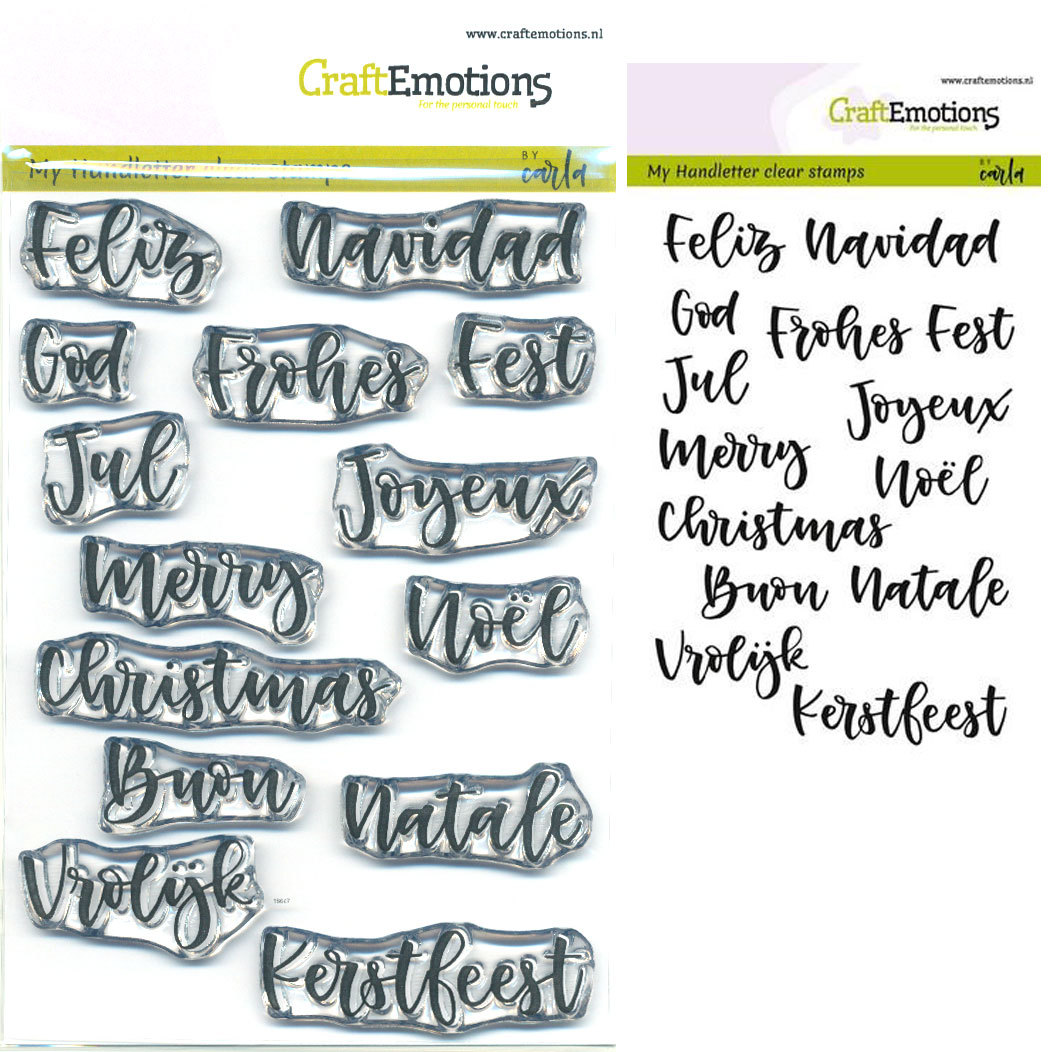 www.craftemotions.nl
CraftEmotions
For the personal touch
My Handletter clear stamps
BY carla
Feliz Navidad
God Frohes Fest
Jul
Joyeux
Merry
Noël
Christmas
Buon
Natale
Vrolijk
Kerstfeest
www.craftemotions.nl
CraftEmotions
For the personal touch
My Handletter clear stamps
BY carla
Feliz Navidad
God Frohes Fest
Jul
Joyeux
Merry
Noël
Christmas
Buon Natale
Vrolijk
Kerstfeest